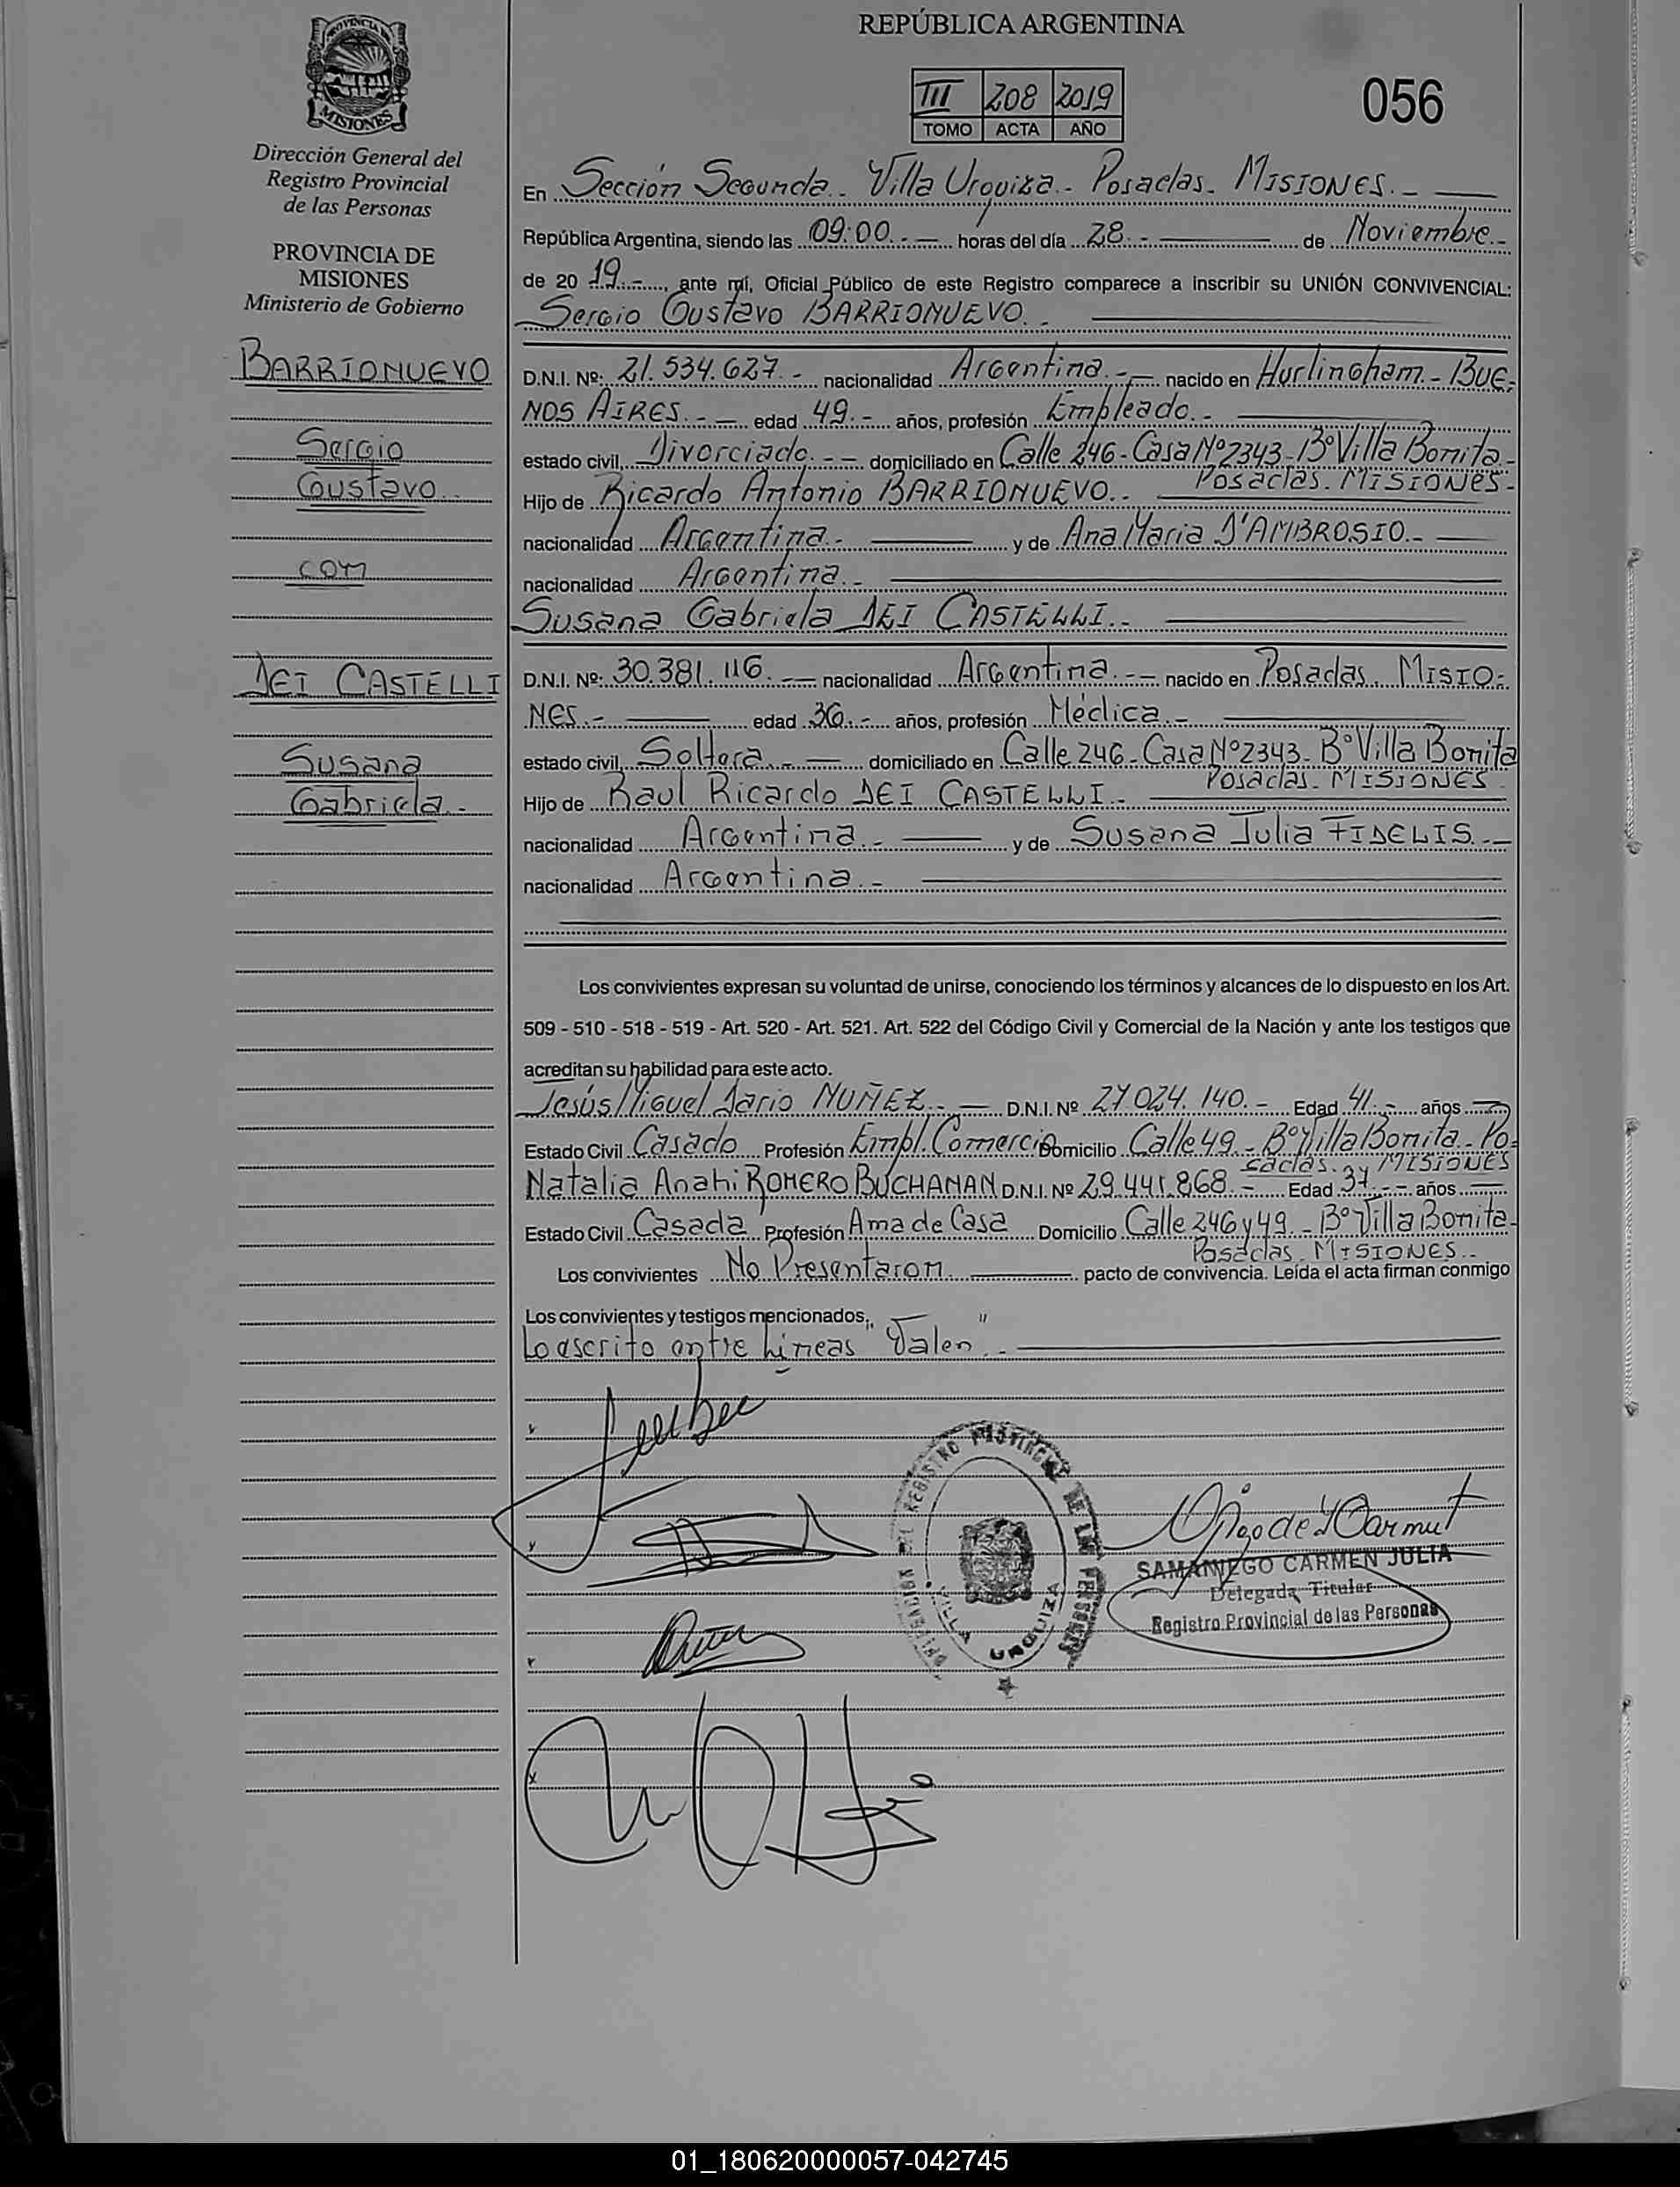 REPÚBLICA ARGENTINA
PROVINCIA DE
MISIONES
Dirección General del
Registro Provincial
de las Personas
PROVINCIA DE
MISIONES
Ministerio de Gobierno
BARRIONUEVO
Sergio
Gustavo.
con
DEI CASTELLI
Susana
Gabriela.-
III 208 2019
TOMO ACTA AÑO
056
En Sección Segunda - Villa Urquiza - Posadas - MISIONES.-
República Argentina, siendo las 09:00.- horas del día 28.- de Noviembre.-
de 20 19.-, ante mí, Oficial Público de este Registro comparece a inscribir su UNIÓN CONVIVENCIAL:
Sergio Gustavo BARRIONUEVO.-
D.N.I. Nº: 21.534.627.- nacionalidad Argentina.- nacido en Hurlingham - BUE-
NOS AIRES.- edad 49.- años, profesión Empleado.-
estado civil, Divorciado.- domiciliado en Calle 246 - Casa Nº 2343 - Bº Villa Bonita -
Posadas. MISIONES.-
Hijo de Ricardo Antonio BARRIONUEVO.-
nacionalidad Argentina.- y de Ana Maria D'AMBROSIO.-
nacionalidad Argentina.-
Susana Gabriela DEI CASTELLI.-
D.N.I. Nº: 30.381.116.- nacionalidad Argentina.- nacido en Posadas. MISIO-
NES.- edad 36.- años, profesión Médica.-
estado civil, Soltera.- domiciliado en Calle 246 - Casa Nº 2343 - Bº Villa Bonita
Posadas - MISIONES
Hijo de Raul Ricardo DEI CASTELLI.-
nacionalidad Argentina.- y de Susana Julia FIDELIS.-
nacionalidad Argentina.-
Los convivientes expresan su voluntad de unirse, conociendo los términos y alcances de lo dispuesto en los Art.
509 - 510 - 518 - 519 - Art. 520 - Art. 521. Art. 522 del Código Civil y Comercial de la Nación y ante los testigos que
acreditan su habilidad para este acto.
Jesús Miguel Dario NUÑEZ.- D.N.I. Nº 27.024.140.- Edad 41.- años
Estado Civil Casado Profesión Empl. Comercio Domicilio Calle 49 - Bº Villa Bonita - Po-
sadas. MISIONES
Natalia Anahi ROMERO BUCHANAN D.N.I. Nº 29.441.868.- Edad 37.- años
Estado Civil Casada Profesión Ama de Casa Domicilio Calle 246 y 49 - Bº Villa Bonita -
Posadas - MISIONES.-
Los convivientes No Presentaron pacto de convivencia. Leída el acta firman conmigo
Los convivientes y testigos mencionados.
Lo escrito entre Lineas "Valen".-
REGISTRO PROVINCIAL DE LAS PERSONAS
VILLA URQUIZA
SAMANIEGO CARMEN JULIA
Delegada Titular
Registro Provincial de las Personas
01_180620000057-042745